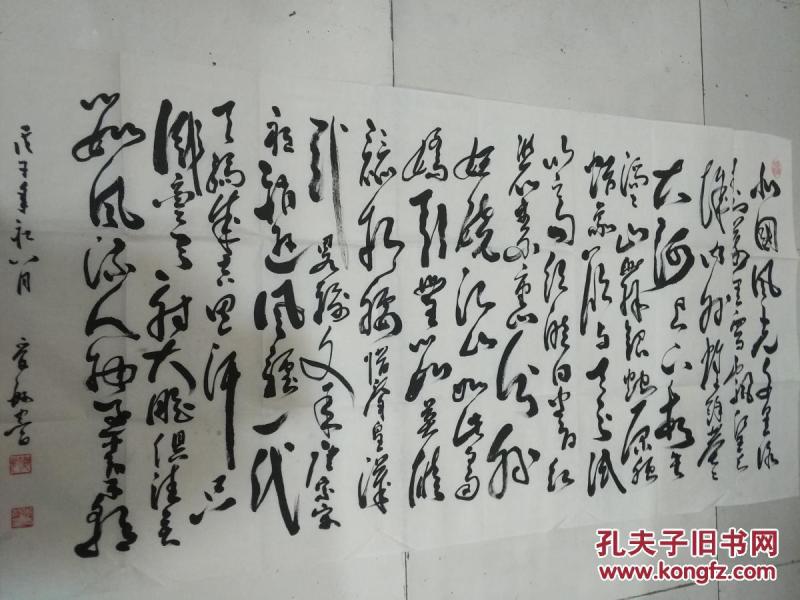 北國風光千里冰
封萬里雪飄望长
城内外惟余莽莽
大河上下頓失
滔滔山舞銀蛇原馳
蜡象欲与天公試
比高須晴日看红
装素裹分外
妖娆江山如此多
嬌引無數英雄
競折腰惜秦皇漢
武略輸文采唐宗宋
祖稍逊風騷一代
天驕成吉思汗只
識彎弓射大雕俱往矣
數風流人物還看今朝
子年秋八月 书
孔夫子旧书网
www.kongfz.com